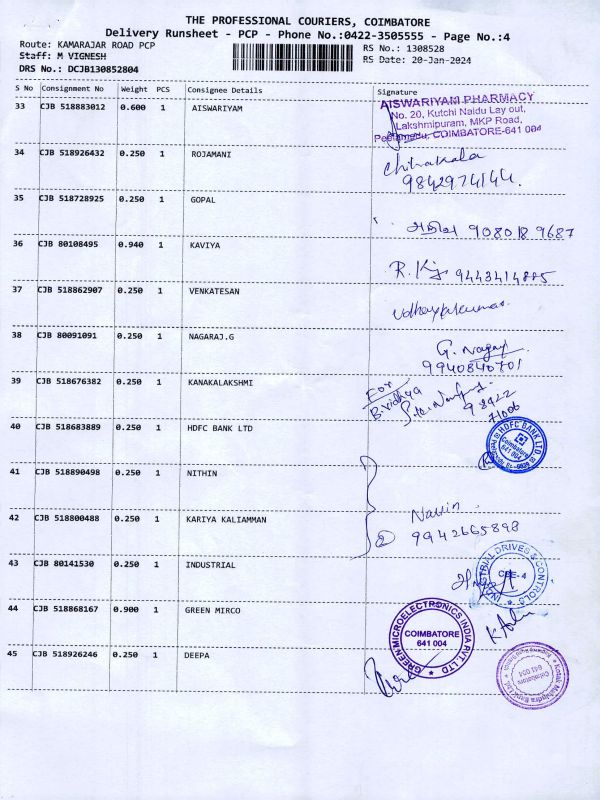 THE PROFESSIONAL COURIERS, COIMBATORE
Delivery Runsheet - PCP - Phone No.:0422-3505555 - Page No.:4
Route: KAMARAJAR ROAD PCP RS No.: 1308528
Staff: M VIGNESH RS Date: 20-Jan-2024
DRS No.: DCJB130852804
S No Consignment No Weight PCS Consignee Details Signature
33 CJB 518883012 0.600 1 AISWARIYAM
AISWARIYAM PHARMACY
No. 20, Kutchi Naidu Lay out,
Lakshmipuram, MKP Road,
Peelamedu, COIMBATORE-641 004
34 CJB 518926432 0.250 1 ROJAMANI
Chitrakala
9842974144.
35 CJB 518728925 0.250 1 GOPAL
9080189687
36 CJB 80108495 0.940 1 KAVIYA
R. 9443414885
37 CJB 518862907 0.250 1 VENKATESAN
Udhayakumar
38 CJB 80091091 0.250 1 NAGARAJ.G
G. Nagaraj
9940840701
39 CJB 518676382 0.250 1 KANAKALAKSHMI
For
B.Vidhya
98422
71006
40 CJB 518683889 0.250 1 HDFC BANK LTD
HDFC BANK LTD
Coimbatore
641 004
41 CJB 518890498 0.250 1 NITHIN
42 CJB 518800488 0.250 1 KARIYA KALIAMMAN
Navin
② 9942665898
43 CJB 80141530 0.250 1 INDUSTRIAL
INDUSTRIAL DRIVES & CONTROLS
CBE-4
44 CJB 518868167 0.900 1 GREEN MIRCO
GREEN MICROELECTRONICS INDIA PVT. LTD
COIMBATORE
641 004
45 CJB 518926246 0.250 1 DEEPA
Kotak Mahindra Bank Ltd.
Coimbatore
641 004